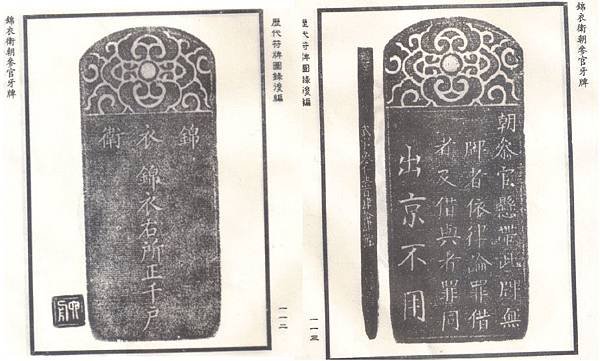 錦衣衛朝參官牙牌
一一三
朝參官懸帶此牌無
牌者依律論罪借
者及借與者罪同
出京不用
歷代符牌圖錄後編
歷代符牌圖錄後編
一一二
錦衣衛
錦衣右所正千戶
錦衣衛朝參官牙牌